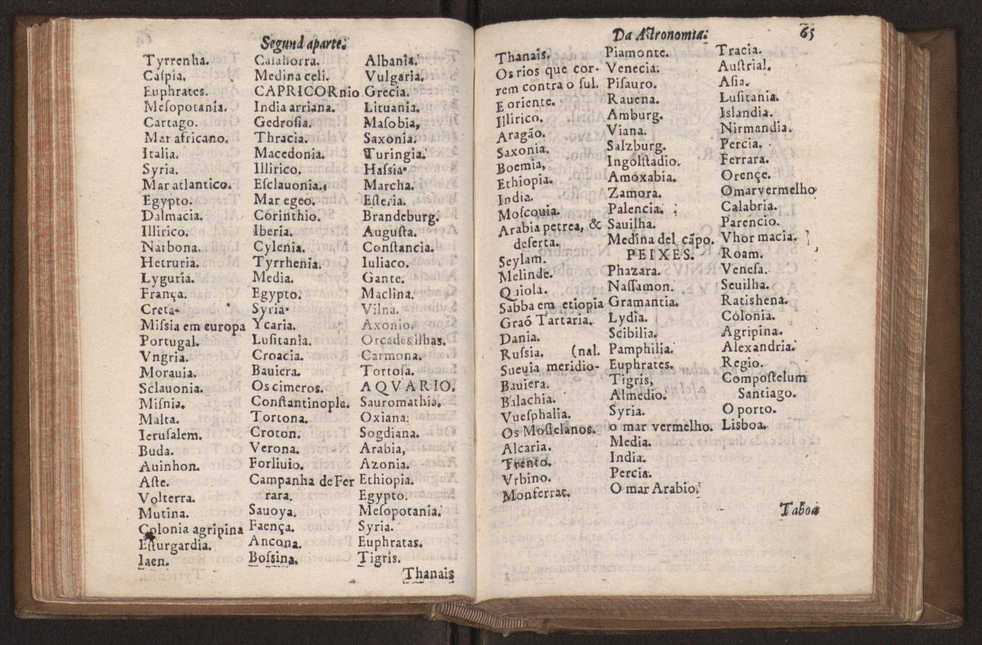 Segund aparte.
Tyrrenha.
Caspia.
Euphrates.
Mesopotania.
Cartago.
Mar africano.
Italia.
Syria.
Mar atlantico.
Egypto.
Dalmacia.
Illirico.
Narbona.
Hetruria.
Lyguria.
França.
Creta.
Missia em europa
Portugal.
Vngria.
Morauia.
Sclauonia.
Misnia.
Malta.
Ierusalem.
Buda.
Auinhon.
Aste.
Volterra.
Mutina.
Colonia agripina
Esturgardia.
Iaen.
Calahorra.
Medina celi.
CAPRICORnio
India arriana.
Gedrosia.
Thracia.
Macedonia.
Illirico.
Esclauonia.
Mar egeo.
Corinthio.
Iberia.
Cylenia.
Tyrrhenia.
Media.
Egypto.
Syria.
Ycaria.
Lusitania.
Croacia.
Bauiera.
Os cimeros.
Constantinopla.
Tortona.
Croton.
Verona.
Forliuio.
Campanha de Fer
rara.
Sauoya.
Faença.
Ancona.
Bossina.
Albania.
Vulgaria.
Grecia.
Lituania.
Masobia,
Saxonia.
Turingia.
Hassia.
Marcha.
Esteria.
Brandeburg.
Augusta.
Constancia.
Iuliaco.
Gante.
Maclina.
Vilna.
Axonio.
Orcades ilhas.
Carmona.
Tortosa.
AQVARIO.
Sauromathia.
Oxiana.
Sogdiana.
Arabia,
Azonia.
Ethiopia.
Egypto.
Mesopotania.
Syria.
Euphratas.
Tigris.
Thanais
Da Astronomia.
65
Thanais.
Os rios que cor-
rem contra o sul.
E oriente.
Illirico.
Aragão.
Saxonia.
Boemia,
Ethiopia.
India.
Moscouia.
Arabia petrea, &
deserta.
Seylam.
Melinde.
Quiola.
Sabba em etiopia
Graõ Tartaria.
Dania.
Russia. (nal.
Sueuia meridio-
Bauiera.
Balachia.
Vuesphalia.
Os Mosselanos.
Alcaria.
Trento.
Vrbino.
Monferrat.
Piamonte.
Venecia.
Pisauro.
Rauena.
Amburg.
Viana.
Salzburg.
Ingolstadio.
Amoxabia.
Zamora.
Palencia.
Sauilha.
Medina del cãpo.
PEIXES.
Phazara.
Nassamon.
Gramantia.
Lydia.
Scibilia.
Pamphilia.
Euphrates.
Tigris,
Almedio.
Syria.
o mar vermelho.
Media.
India.
Percia.
O mar Arabio.
Tracia.
Austrial.
Asia.
Lusitania.
Islandia.
Nirmandia.
Percia.
Ferrara.
Orençe.
Omarvermelho
Calabria.
Parencio.
Vhor macia.
Roam.
Venesa.
Seuilha.
Ratishena.
Colonia.
Agripina.
Alexandria.
Regio.
Compostelum
Santiago.
O porto.
Lisboa.
Taboa